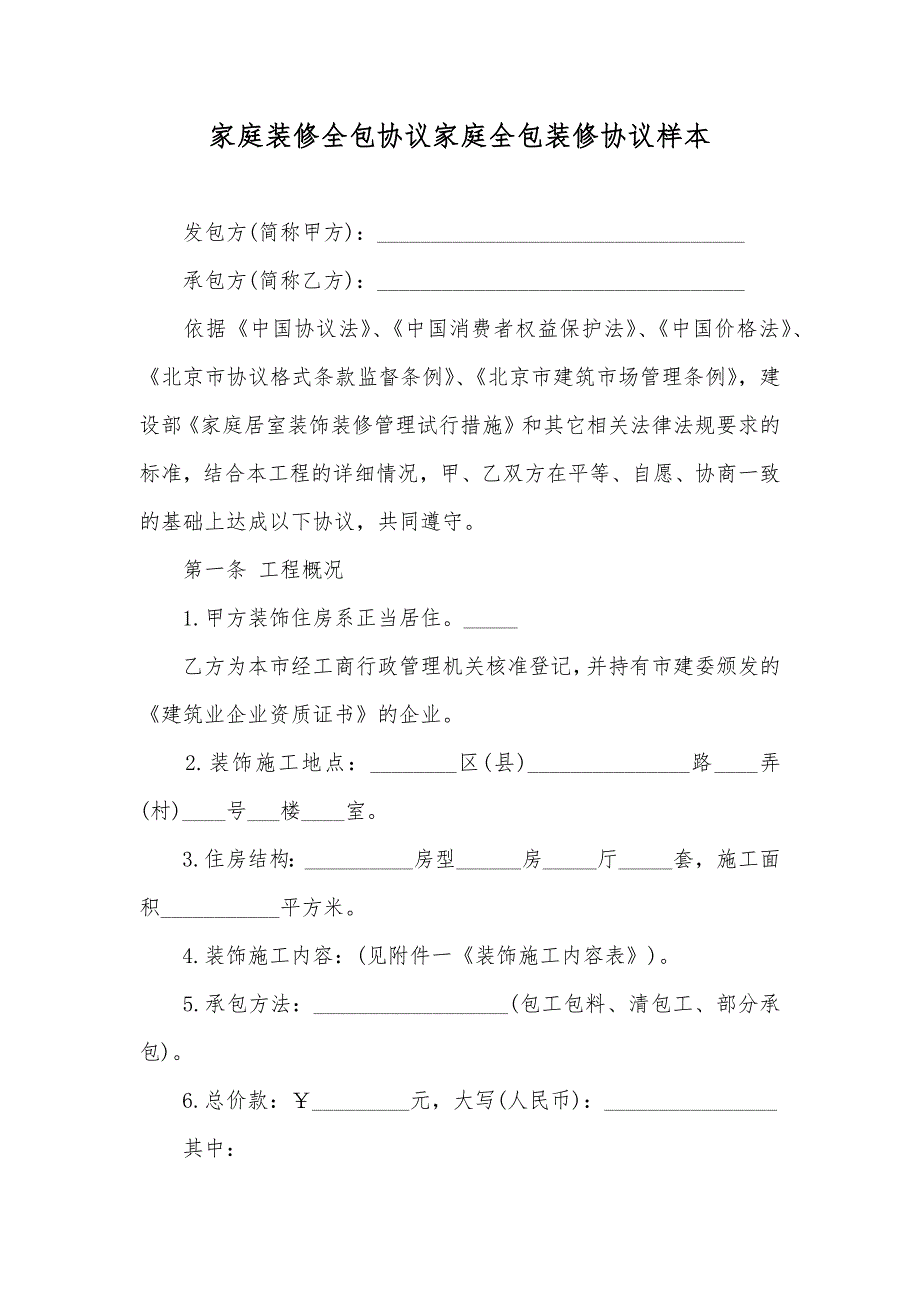 家庭装修全包协议家庭全包装修协议样本
发包方(简称甲方)：__________________________________
承包方(简称乙方)：__________________________________
依据《中国协议法》、《中国消费者权益保护法》、《中国价格法》、
《北京市协议格式条款监督条例》、《北京市建筑市场管理条例》，建
设部《家庭居室装饰装修管理试行措施》和其它相关法律法规要求的
标准，结合本工程的详细情况，甲、乙双方在平等、自愿、协商一致
的基础上达成以下协议，共同遵守。
第一条 工程概况
1.甲方装饰住房系正当居住。_____
乙方为本市经工商行政管理机关核准登记，并持有市建委颁发的
《建筑业企业资质证书》的企业。
2.装饰施工地点：________区(县)_______________路____弄
(村)____号___楼____室。
3.住房结构：__________房型______房_____厅_____套，施工面
积___________平方米。
4.装饰施工内容：(见附件一《装饰施工内容表》)。
5.承包方法：__________________(包工包料、清包工、部分承
包)。
6.总价款：￥_________元，大写(人民币)：________________
其中：